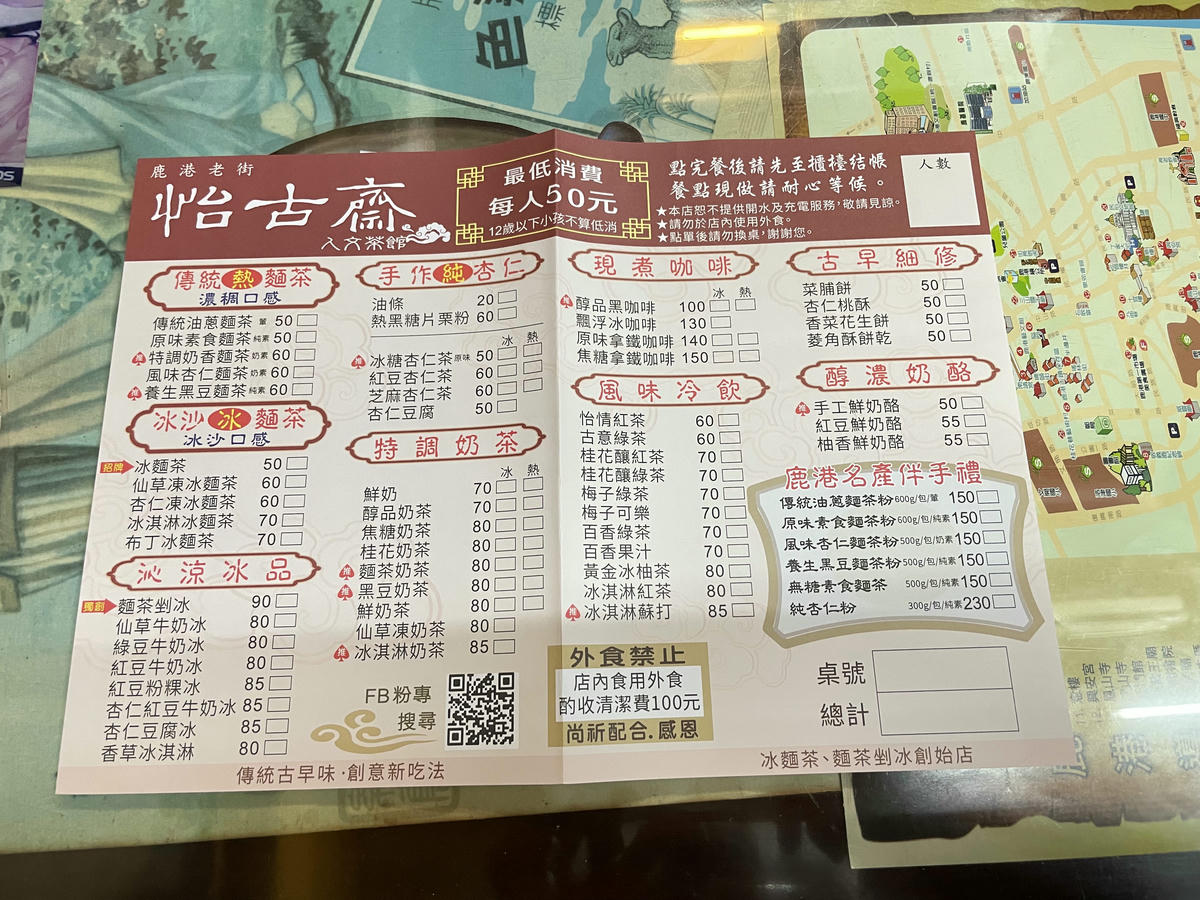 鹿港老街
怡古齋
人文茶館
最低消費
每人50元
12歲以下小孩不算低消
點完餐後請先至櫃檯結帳
餐點現做請耐心等候。
★本店恕不提供開水及充電服務,敬請見諒。
★請勿於店內使用外食。
★點單後請勿換桌,謝謝您。
人數
傳統熱麵茶
濃稠口感
傳統油蔥麵茶 葷 50
原味素食麵茶 純素 50
推 特調奶香麵茶 奶素 60
風味杏仁麵茶 奶素 60
推 養生黑豆麵茶 純素 60
冰沙冰麵茶
冰沙口感
招牌 冰麵茶 50
仙草凍冰麵茶 60
杏仁凍冰麵茶 60
冰淇淋冰麵茶 70
布丁冰麵茶 70
沁涼冰品
獨創 麵茶剉冰 90
仙草牛奶冰 80
綠豆牛奶冰 80
紅豆牛奶冰 80
紅豆粉粿冰 85
杏仁紅豆牛奶冰 85
杏仁豆腐冰 85
香草冰淇淋 80
手作純杏仁
油條 20
熱黑糖片栗粉 60
冰 熱
推 冰糖杏仁茶 原味 50
紅豆杏仁茶 60
芝麻杏仁茶 60
杏仁豆腐 50
特調奶茶
冰 熱
鮮奶 70
醇品奶茶 70
焦糖奶茶 80
桂花奶茶 80
推 麵茶奶茶 80
推 黑豆奶茶 80
鮮奶茶 80
仙草凍奶茶 80
推 冰淇淋奶茶 85
FB粉專
搜尋
現煮咖啡
冰 熱
推 醇品黑咖啡 100
飄浮冰咖啡 130
原味拿鐵咖啡 140
焦糖拿鐵咖啡 150
風味冷飲
怡情紅茶 60
古意綠茶 60
桂花釀紅茶 70
桂花釀綠茶 70
梅子綠茶 70
梅子可樂 70
百香綠茶 70
百香果汁 70
黃金冰柚茶 80
冰淇淋紅茶 80
推 冰淇淋蘇打 85
外食禁止
店內食用外食
酌收清潔費100元
尚祈配合.感恩
古早細修
菜脯餅 50
杏仁桃酥 50
香菜花生餅 50
菱角酥餅乾 50
醇濃奶酪
推 手工鮮奶酪 50
紅豆鮮奶酪 55
柚香鮮奶酪 55
鹿港名產伴手禮
傳統油蔥麵茶粉 600g/包/葷 150
原味素食麵茶粉 600g/包/純素 150
風味杏仁麵茶粉 500g/包/奶素 150
養生黑豆麵茶粉 500g/包/純素 150
無糖素食麵茶 500g/包/純素 150
純杏仁粉 300g/包/純素 230
桌號
總計
傳統古早味‧創意新吃法
冰麵茶、麵茶剉冰創始店